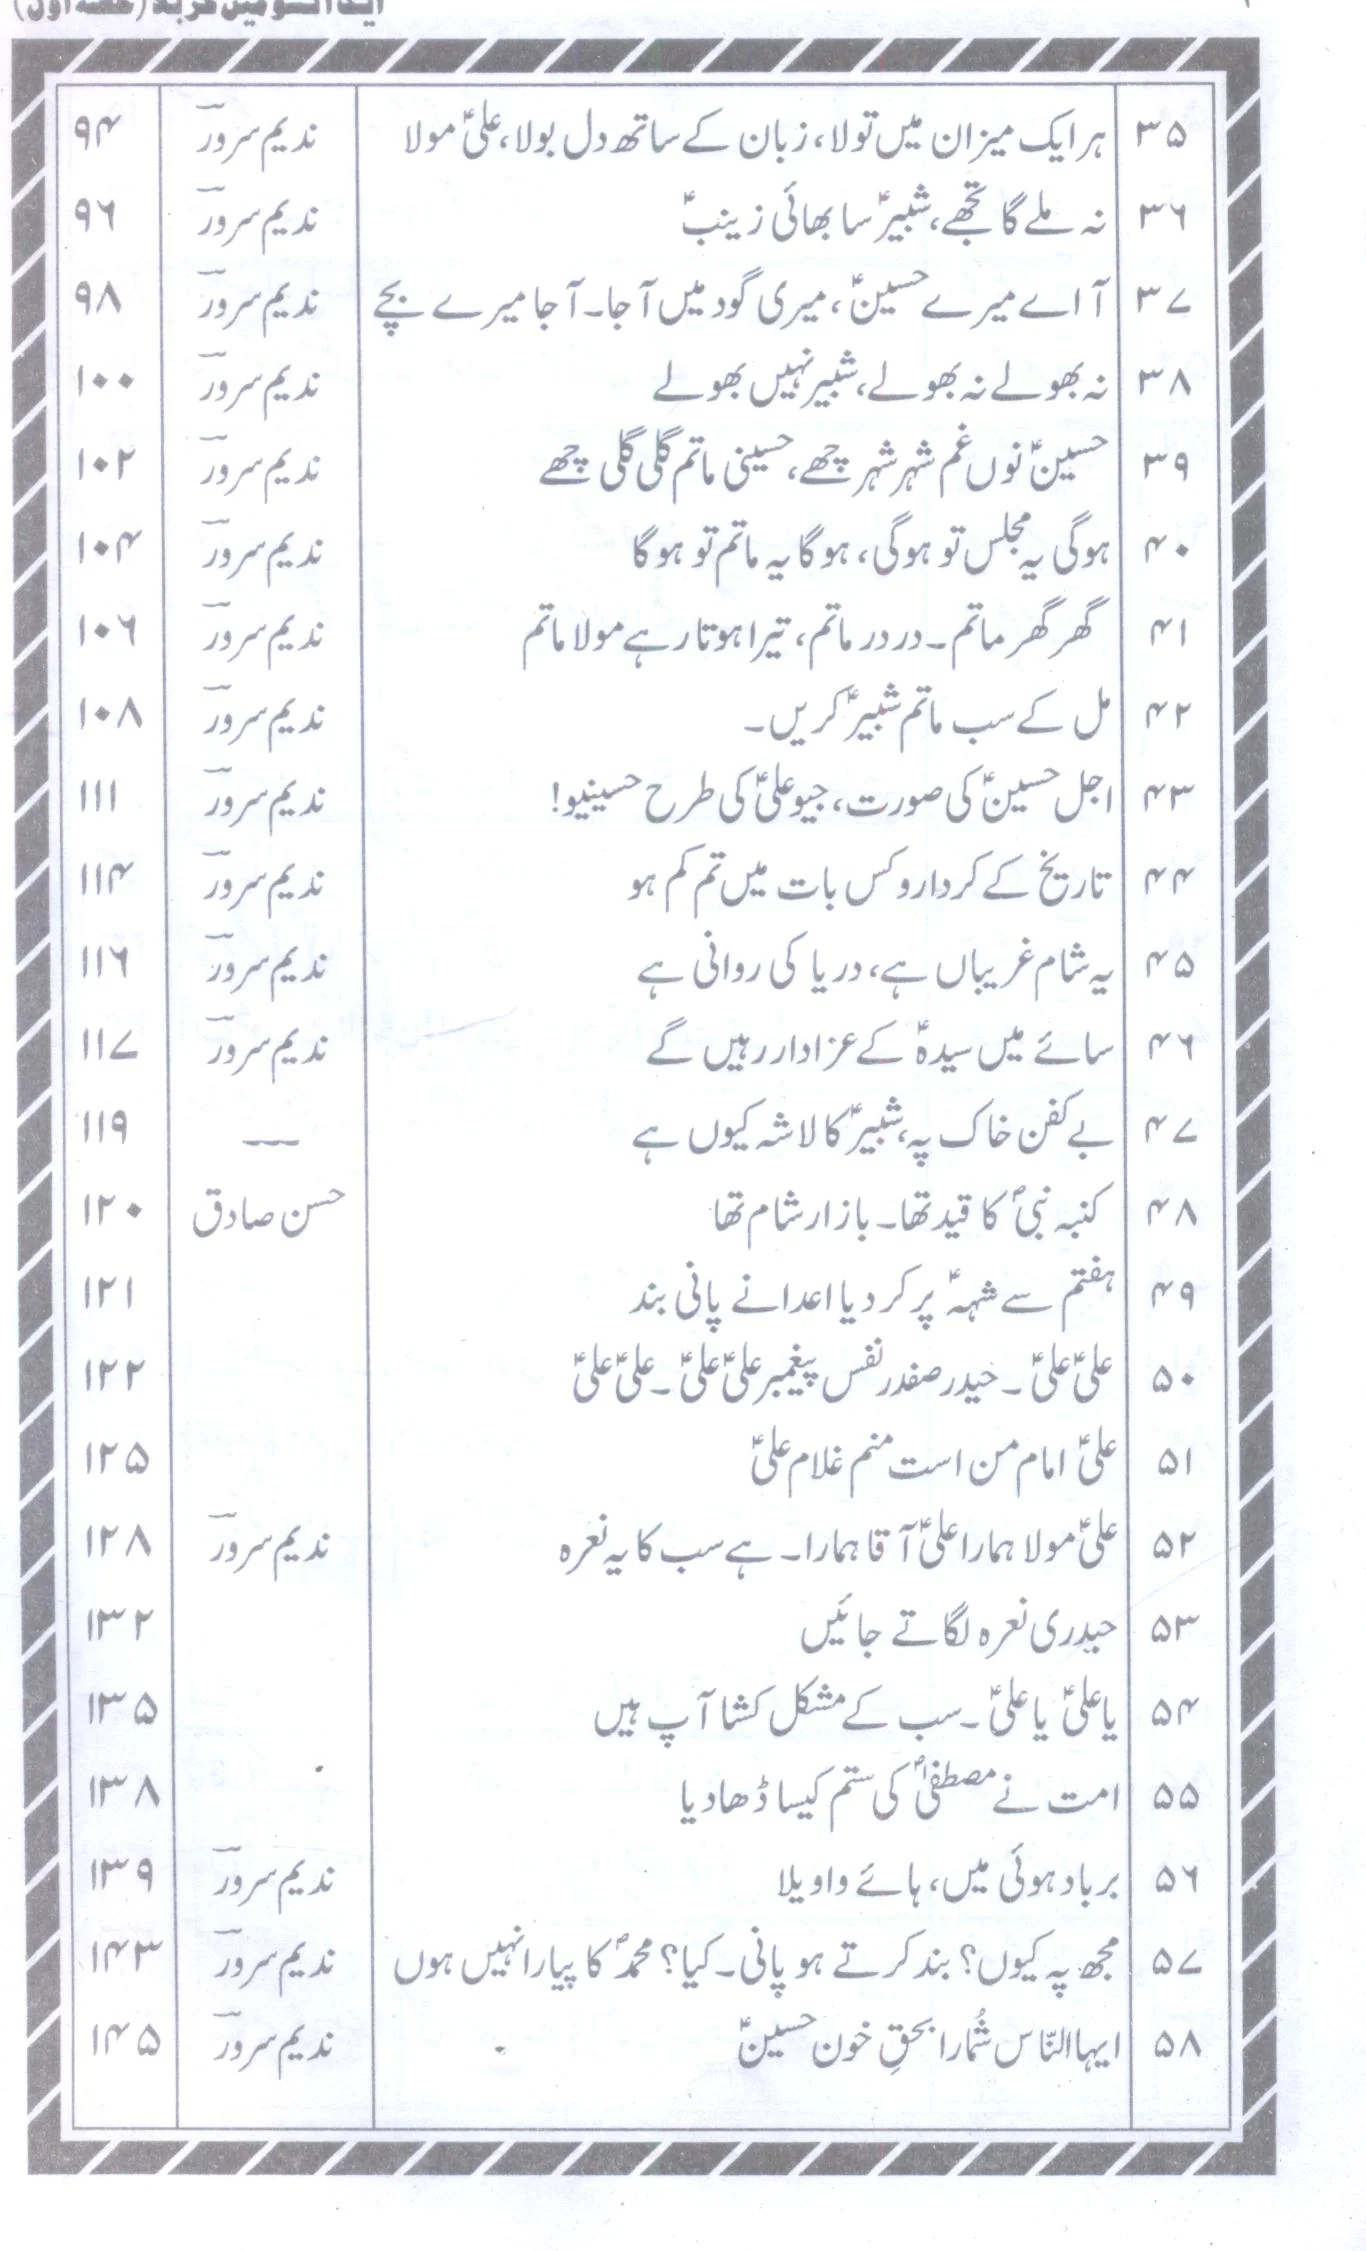 ۳۵ ہر ایک میزان میں تولا، زبان کے ساتھ دل بولا، علیؑ مولا ندیم سرورؔ ۹۴
۳۶ نہ ملے گا تجھے، شبیرؑ سا بھائی زینبؑ ندیم سرورؔ ۹۶
۳۷ آ اے میرے حسینؑ، میری گود میں آ جا۔ آ جا میرے بچے ندیم سرورؔ ۹۸
۳۸ نہ بھولے نہ بھولے، شبیر نہیں بھولے ندیم سرورؔ ۱۰۰
۳۹ حسینؑ نوں غم شہر شہر چھے، حسینی ماتم گلی گلی چھے ندیم سرورؔ ۱۰۲
۴۰ ہوگی یہ مجلس تو ہوگی، ہوگا یہ ماتم تو ہوگا ندیم سرورؔ ۱۰۴
۴۱ گھر گھر ماتم۔ در در ماتم، تیرا ہوتا رہے مولا ماتم ندیم سرورؔ ۱۰۶
۴۲ مل کے سب ماتم شبیرؑ کریں۔ ندیم سرورؔ ۱۰۸
۴۳ اجل حسینؑ کی صورت، جیو علیؑ کی طرح حسینیو! ندیم سرورؔ ۱۱۱
۴۴ تاریخ کے کردارو کس بات میں تم کم ہو ندیم سرورؔ ۱۱۴
۴۵ یہ شام غریباں ہے، دریا کی روانی ہے ندیم سرورؔ ۱۱۶
۴۶ سائے میں سیدہؑ کے عزادار رہیں گے ندیم سرورؔ ۱۱۷
۴۷ بے کفن خاک پہ، شبیرؑ کا لاشہ کیوں ہے — ۱۱۹
۴۸ کنبہ نبیؐ کا قید تھا۔ بازار شام تھا حسن صادق ۱۲۰
۴۹ ہفتم سے شہہؑ پر کر دیا اعدا نے پانی بند ۱۲۱
۵۰ علیؑ علیؑ۔ حیدر صفدر نفس پیغمبر علیؑ علیؑ۔ علیؑ علیؑ ۱۲۲
۵۱ علیؑ امام من است منم غلام علیؑ ۱۲۵
۵۲ علیؑ مولا ہمارا علیؑ آقا ہمارا۔ ہے سب کا یہ نعرہ ندیم سرورؔ ۱۲۸
۵۳ حیدری نعرہ لگاتے جائیں ۱۳۲
۵۴ یا علیؑ یا علیؑ۔ سب کے مشکل کشا آپ ہیں ۱۳۵
۵۵ امت نے مصطفیؐ کی ستم کیسا ڈھا دیا ۱۳۸
۵۶ برباد ہوئی میں، ہائے واویلا ندیم سرورؔ ۱۳۹
۵۷ مجھ پہ کیوں؟ بند کرتے ہو پانی۔ کیا؟ محمدؐ کا پیارا نہیں ہوں ندیم سرورؔ ۱۴۳
۵۸ ایہا النّاس شُمارا بحقِ خون حسینؑ ندیم سرورؔ ۱۴۵